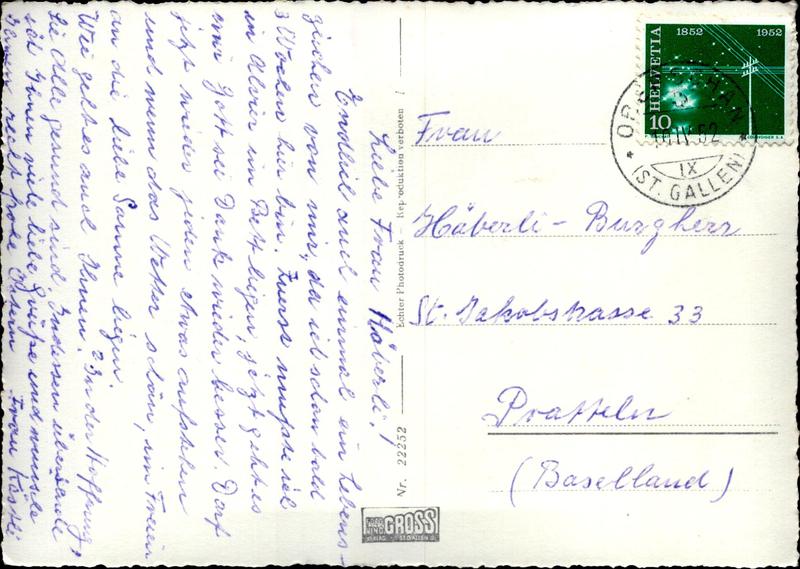 Liebe Frau Häberli!
Endlich auch einmal ein Lebens-
zeichen von mir, da ich schon bald
3 Wochen hier bin. Zuerst musste ich
in Bett liegen, jetzt geht es
mir Gott sei Dank wieder besser. Darf
jetzt wieder jeden etwas aufstehen
und wenn das Wetter schön, im Freien
an die liebe Sonne liegen.
Wie geht es auch Ihnen? In der Hoffnung,
Sie alle gesund sind. Indessen übersende
ich Ihnen viele liebe Grüsse und wünsche
recht frohe Ostern Frau
Nr. 22252
Echter Photodruck – Reproduktion verboten !
FOTO GROSS
VERLAG ST. GALLEN
1852 1952
HELVETIA
10
IX
(ST. GALLEN)
Frau
Häberli – Burgherr
St. Jakobstrasse 33
Pratteln
(Baselland)